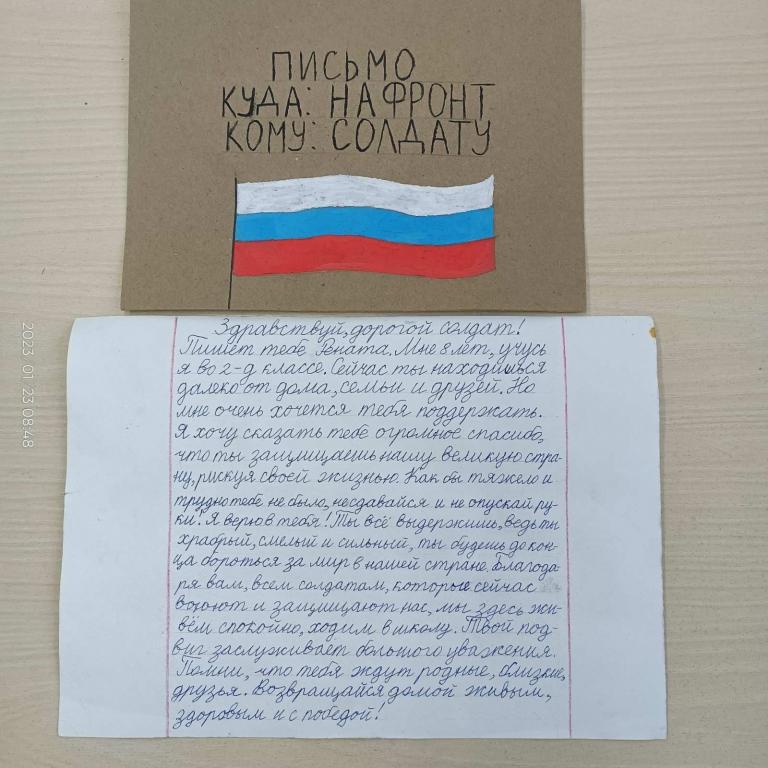 ПИСЬМО
КУДА: НА ФРОНТ
КОМУ: СОЛДАТУ
Здравствуй, дорогой солдат!
Пишет тебе Рената. Мне 8 лет, учусь
я во 2-д классе. Сейчас ты находишься
далеко от дома, семьи и друзей. Но
мне очень хочется тебя поддержать.
Я хочу сказать тебе огромное спасибо,
что ты защищаешь нашу великую стра-
ну, рискуя своей жизнью. Как бы тяжело и
трудно тебе не было, несдавайся и не опускай ру-
ки! Я верю в тебя! Ты всё выдержишь, ведь ты
храбрый, смелый и сильный, ты будешь до кон-
ца бороться за мир в нашей стране. Благода-
ря вам, всем солдатам, которые сейчас
воюют и защищают нас, мы здесь жи-
вём спокойно, ходим в школу. Твой под-
виг заслуживает большого уважения.
Помни, что тебя ждут родные, близкие,
друзья. Возвращайся домой живым,
здоровым и с победой!
2023 01 23 08:48